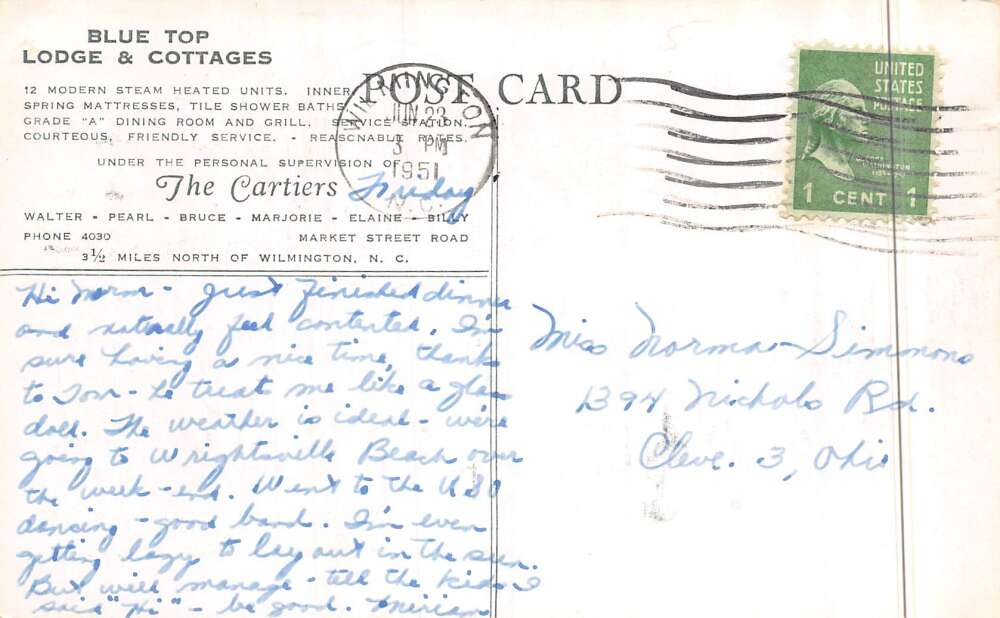 BLUE TOP
LODGE & COTTAGES
12 MODERN STEAM HEATED UNITS. INNER
SPRING MATTRESSES, TILE SHOWER BATHS.
GRADE "A" DINING ROOM AND GRILL. SERVICE STATION.
COURTEOUS, FRIENDLY SERVICE. - REASONABLE RATES.
UNDER THE PERSONAL SUPERVISION OF
The Cartiers
WALTER - PEARL - BRUCE - MARJORIE - ELAINE - BILLY
PHONE 4030 MARKET STREET ROAD
3½ MILES NORTH OF WILMINGTON, N. C.
POST CARD
WILMINGTON
JUN 23
3 PM
1951
N.C.
UNITED
STATES
POSTAGE
1 CENT 1
Friday
Hi Norm - Just finished dinner
and naturally feel contented. I'm
sure having a nice time, thanks
to Tom - he treats me like a glass
doll. The weather is ideal - we're
going to Wrightsville Beach over
the week-end. Went to the USO
dancing - good band. I'm even
getting lazy to lay out in the sun.
But will manage - tell the kids I
said "Hi" - be good. Miriam
Miss Norma Simmons
1394 Nichols Rd.
Cleve. 3, Ohio